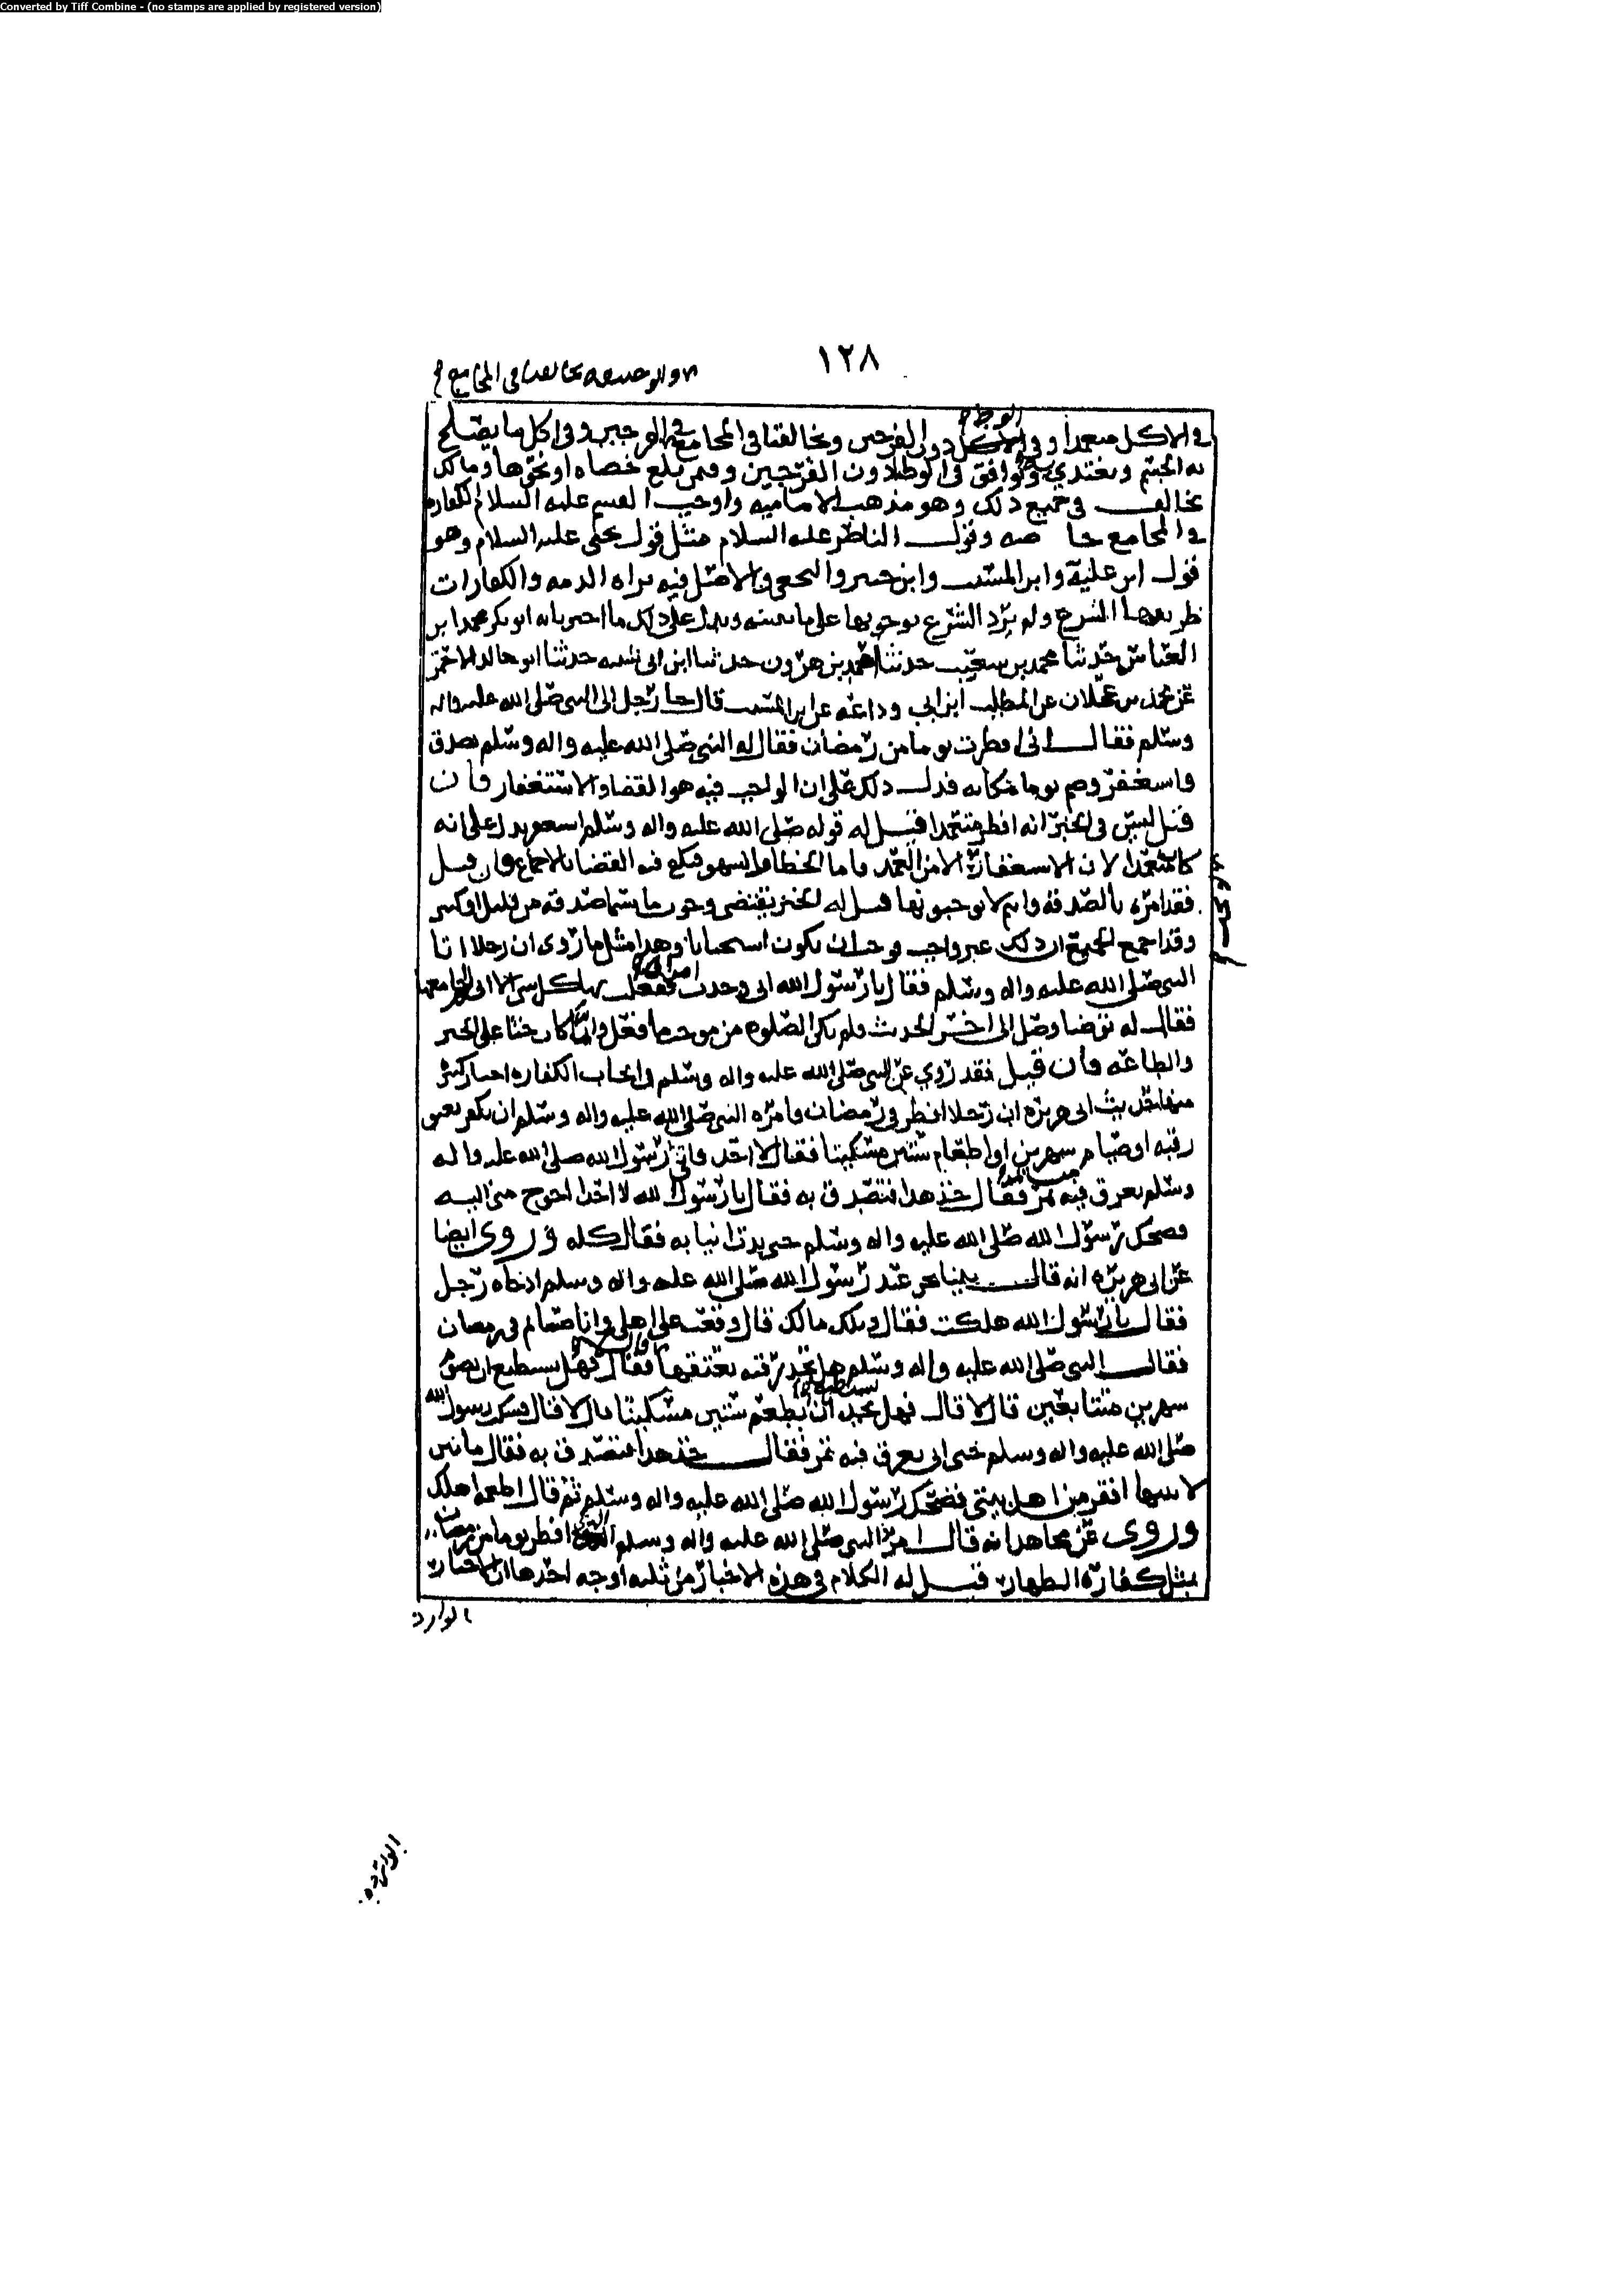 Converted by Tiff Combine - (no stamps are applied by registered version)
١٢٨
وابو حنيفه يخالفنا في المجامع
الوطء
في الاكل متعمدا وفي دون الفرجين ويخالفنا في المجامع في الفرجين وفي اكل ما يصلح
به الجسم ويغتذي ويوافق في الوطء دون الفرجين وفمن بلع حصاه او نحوها ومالك
يخالف في جميع ذلك وهو مذهب الاماميه واوجب القسم عليه السلام الكفاره
في المجامع خاصه وقول الناصر عليه السلام مثل قول يحيى عليه السلام وهو
قول ابن علية وابن المسيب وابن جبير والنخعي والاصل فيه براه الذمه والكفارات
طريقها الشرع ولم يرد الشرع بوجوبها على ما بينته ويدل على ذلك ما اخبرنا به ابو بكر محمد ابن
العباس حدثنا محمد بن شعيب حدثنا احمد بن هرون حدثنا ابن ابي شيبه حدثنا ابو خالد الاحمر
عن محمد بن عجلان عن المطلب ابن ابي وداعه عن ابن المسيب قال جا رجل الى النبي صلى الله عليه واله
وسلم فقال اني افطرت يوما من رمضان فقال له النبي صلى الله عليه واله وسلم تصدق
واستغفر وصم يوما مكانه فدل ذلك على ان الواجب فيه هو القضا والاستغفار فان
قيل ليس في الخبر انه افطر متعمدا قيل له قوله صلى الله عليه واله وسلم استغفر يدل على انه
كان متعمدا لان الاستغفار الا من العمد واما الخطا والسهو فيكفي فيه القضا بالاجماع فان قيل
فقد امره بالصدقه وانتم لا توجبونها قيل له الخبر يقتضي وجوب ما يسما صدقه من قليل او كثير
وقد اجمع الجميع ان ذلك غير واجب فوجب ان يكون استحبابا وهذا مثل ما روى ان رجلا اتا
النبي صلى الله عليه واله وسلم فقال يا رسول الله اني وجدت امراه ففعلت بها كل شي الا اني لم اجامعها
فقال له توضا وصل الى اخر الحديث ولم تكن الصلوه من موجب ما فعل وانما كان حثا على الخير
والطاعه فان قيل فقد روي عن النبي صلى الله عليه واله وسلم في ايجاب الكفاره اخبار كثيره
منها حديث ابي هريره ان رجلا افطر في رمضان فامره النبي صلى الله عليه واله وسلم ان يكفر بعتق
رقبه او صيام شهرين او اطعام ستين مسكينا فقال لا اجد فاتي رسول الله صلى الله عليه واله
وسلم بعرق فيه تمر فقال خذ هذا فتصدق به فقال يا رسول الله لا احد احوج مني اليه
فضحك رسول الله صلى الله عليه واله وسلم حتى بدت انيابه فقال كله وروى ايضا
عن ابي هريره انه قال بينا نحن عند رسول الله صلى الله عليه واله وسلم اذ جاه رجل
فقال يا رسول الله هلكت فقال ويلك مالك قال وقعت على اهلي وانا صائم في رمضان
فقال النبي صلى الله عليه واله وسلم هل تجد رقبه تعتقها قال لا فقال فهل تستطيع ان تصوم
شهرين متتابعين قال لا قال فهل تستطيع ان تطعم ستين مسكينا قال لا قال فسكت رسول الله
صلى الله عليه واله وسلم حتى اتي بعرق فيه تمر فقال خذ هذا فتصدق به فقال ما بين
لابتيها افقر من اهل بيتي فضحك رسول الله صلى الله عليه واله وسلم ثم قال اطعمه اهلك
وروى عن مجاهد انه قال امر النبي صلى الله عليه واله وسلم الذي افطر يوما من رمضان
بمثل كفارة الظهار قيل له الكلام في هذه الاخبار من ثلثه اوجه احدها ان الاخبار
الوارده
الوارده